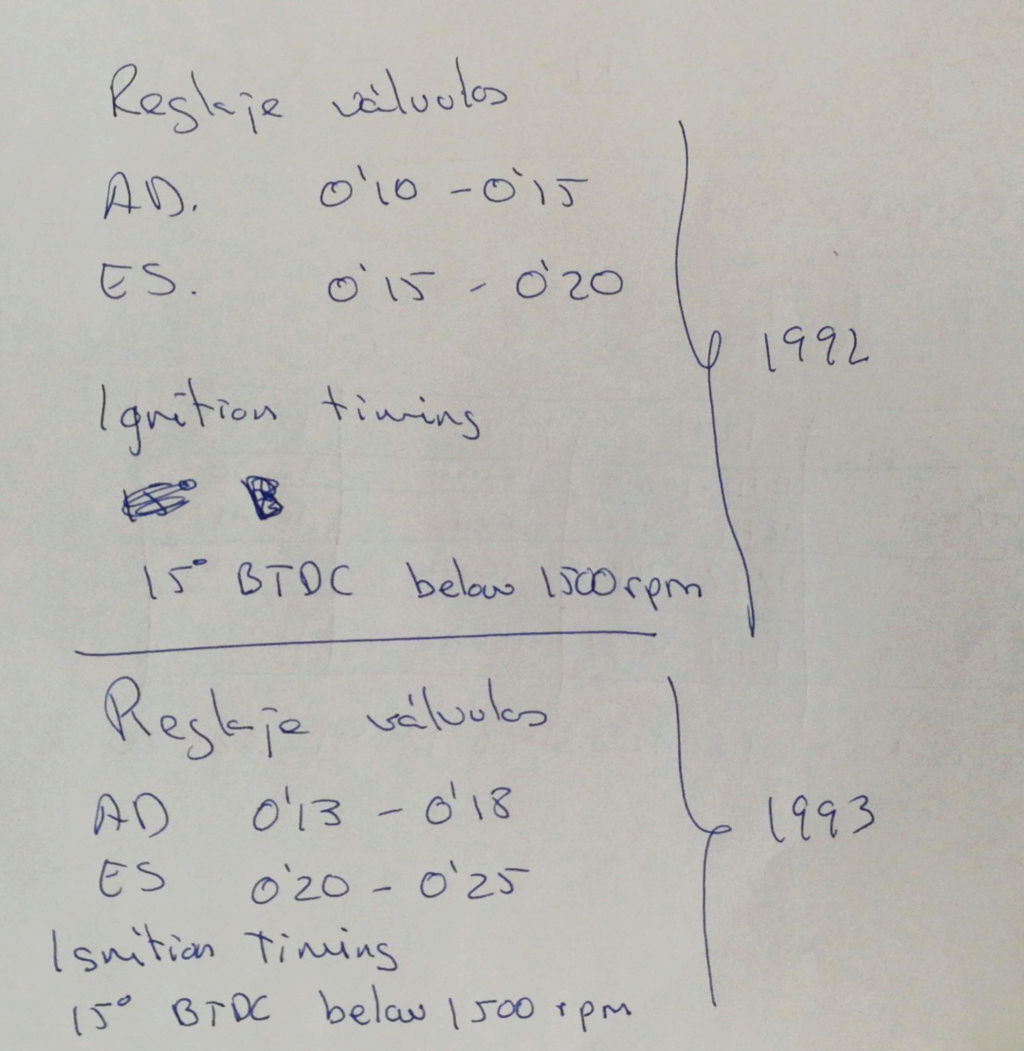 Reglaje válvulas
AD. 0'10 - 0'15
ES. 0'15 - 0'20
1992
Ignition timing
15° BTDC below 1500 rpm
Reglaje válvulas
AD 0'13 - 0'18
1993
ES 0'20 - 0'25
Ignition Timing
15° BTDC below 1500 rpm